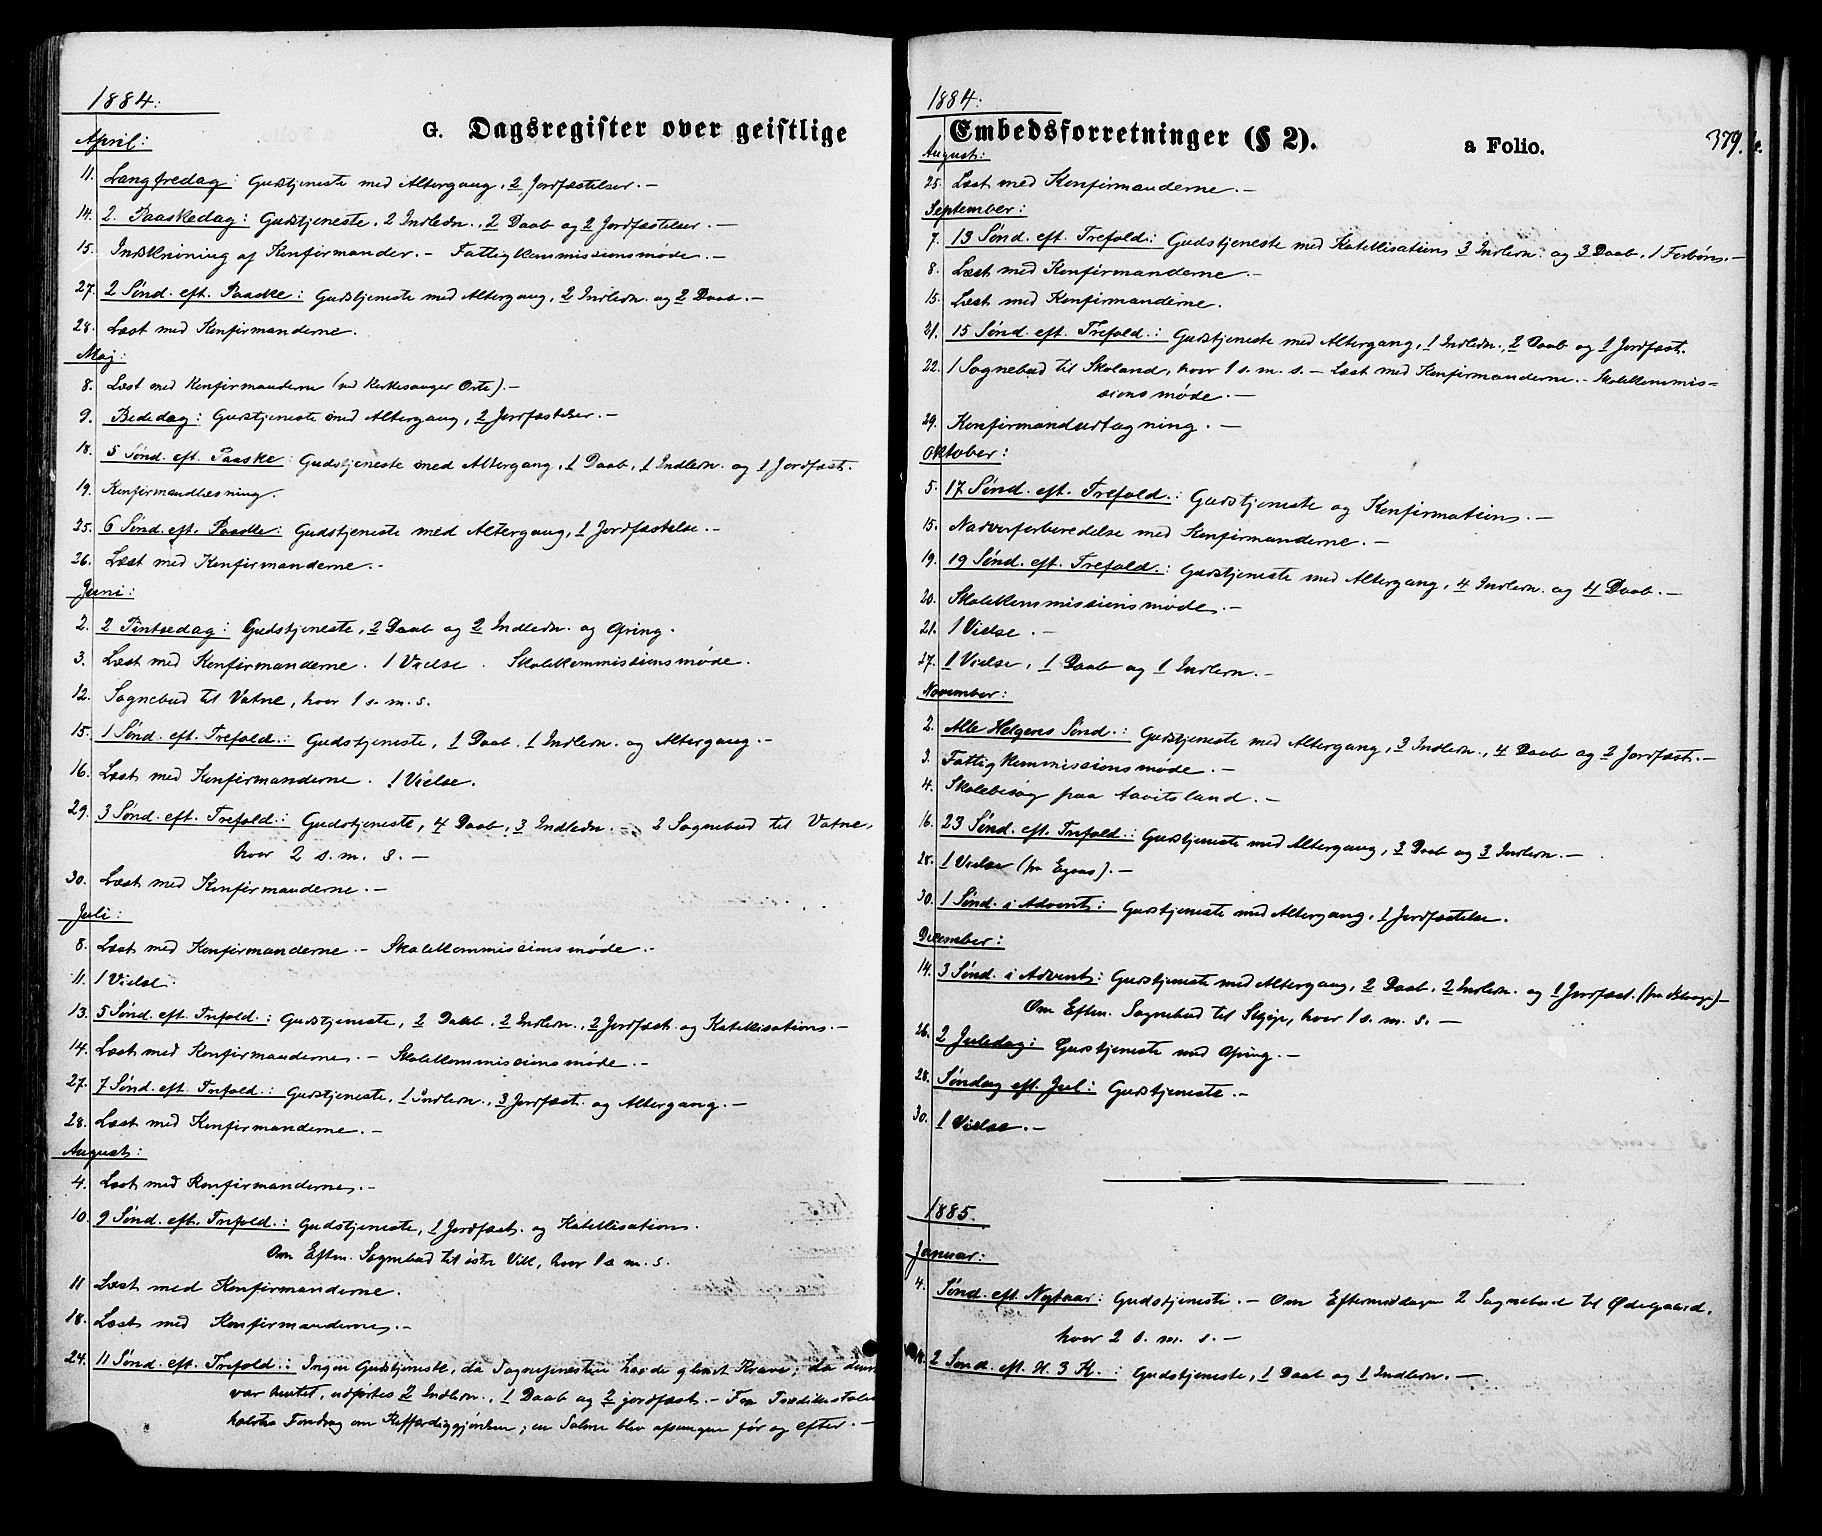 1884:
G. Dagsregister over geistlige
April:
11. Langfredag: Gudstjeneste med Altergang, 2 Jordfæstelser. –
14. 2. Paaskedag: Gudstjeneste, 2 Indledn., 2 Daab og 2 Jordfæstelser. –
15. Indskrivning af Konfirmander. – Fattigkommissionsmøde. –
27. 2 Sønd. eft. Paaske: Gudstjeneste med Altergang, 2 Indledn. og 2 Daab. –
28. Læst med Konfirmanderne.
Maj:
8. Læst med Konfirmanderne (ved Kirkesanger Orte). –
9. Bededag: Gudstjeneste med Altergang, 2 Jordfæstelser. –
18. 5 Sønd. eft. Paaske: Gudstjeneste med Altergang, 1 Daab, 1 Indledn. og 1 Jordfæst.
19. Konfirmandlæsning.
25. 6 Sønd. eft. Paaske: Gudstjeneste med Altergang, 1 Jordfæstelse. –
26. Læst med Konfirmanderne. –
Juni:
2. 2 Pintsedag: Gudstjeneste, 2 Daab og 2 Indledn. og Ofring.
3. Læst med Konfirmanderne. 1 Vielse. Skolekommissionsmøde.
12. Sognebud til Vatne, hvor 1 s. m. s.
15. 1 Sønd. eft. Trefold.: Gudstjeneste, 1 Daab, 1 Indledn. og Altergang. –
16. Læst med Konfirmanderne. 1 Vielse.
29. 3 Sønd. eft. Trefold.: Gudstjeneste, 4 Daab, 3 Indledn. – 2 Sognebud til Vatne,
hvor 2 s. m. s. –
30. Læst med Konfirmanderne. –
Juli:
8. Læst med Konfirmanderne – Skolekommissionsmøde. –
11. 1 Vielse.
13. 5 Sønd. eft. Trefold.: Gudstjeneste, 2 Daab, 2 Indledn., 2 Jordfæst. og Katekisation. –
14. Læst med Konfirmanderne. – Skolekommissionsmøde. –
27. 7 Sønd. eft. Trefold.: Gudstjeneste, 1 Indledn., 3 Jordfæst. og Altergang. –
28. Læst med Konfirmanderne. –
August:
4. Læst med Konfirmanderne. –
10. 9 Sønd. eft. Trefold.: Gudstjeneste, 1 Jordfæst. og Katekisation.
Om Eftm. Sognebud til østre , hvor 1 s. m. s.
11 Læst med Konfirmanderne.
18. Læst med Konfirmanderne. –
24. 11 Sønd. eft. Trefold.: Ingen Gudstjeneste, da havde glemt Krave; da denne
var hentet, udførtes 2 Indledn., 1 Daab og 2 jordfæst. – Fra Prædikestolen
holdtes Foredrag om Retfærdiggjørelsen; en Salme blev afsungen før og efter. –
1884:
Embedsforretninger (§ 2).
a Folio.
379.
August:
25. Læst med Konfirmanderne. –
September:
7. 13 Sønd. eft. Trefold.: Gudstjeneste med Katekisation, 3 Indledn. og 3 Daab, 1 Forbøn. –
8. Læst med Konfirmanderne. –
15. Læst med Konfirmanderne.
21. 15 Sønd. eft. Trefold.: Gudstjeneste med Altergang, 1 Indledn., 2 Daab og 1 Jordfæst.
22. 1 Sognebud til Skoland, hvor 1 s. m. s. – Læst med Konfirmanderne. – Skolekommis-
sionsmøde. –
29. Konfirmandudtagning. –
Oktober:
5. 17 Sønd. eft. Trefold.: Gudstjeneste og Konfirmation. –
15. Nadverforberedelse med Konfirmanderne. –
19. 19 Sønd. eft. Trefold.: Gudstjeneste med Altergang, 4 Indledn. og 4 Daab. –
20. Skolekommissionsmøde. –
21. 1 Vielse. –
27. 1 Vielse, 1 Daab og 1 Indledn. –
November:
2. Alle Helgens Sønd.: Gudstjeneste med Altergang, 3 Indledn., 4 Daab og 2 Jordfæst. –
3. Fattigkommissionsmøde. –
4. Skolebesøg paa Aavitsland. –
16. 23 Sønd. eft. Trefold.: Gudstjeneste med Altergang, 3 Daab og 3 Indledn. –
28. 1 Vielse (fra ). –
30. 1 Sønd. i Advent: Gudstjeneste med Altergang, 1 Jordfæstelse.
December:
14. 3 Sønd. i Advent: Gudstjeneste med Altergang, 2 Daab, 2 Indledn. og 1 Jordfæst.
Om Eftm. Sognebud til , hvor 1 s. m. s. –
26. 2 Juledag: Gudstjeneste med Ofring. –
28. Søndag eft. Jul: Gudstjeneste. –
30. 1 Vielse. –
1885.
Januar:
4. Sønd. eft. Nytaar: Gudstjeneste. – Om Eftermiddagen 2 Sognebud til Ødegaard,
hvor 2 s. m. s. –
2 Sønd. eft. H. 3 K.: Gudstjeneste, 1 Daab og 1 Indledn. –